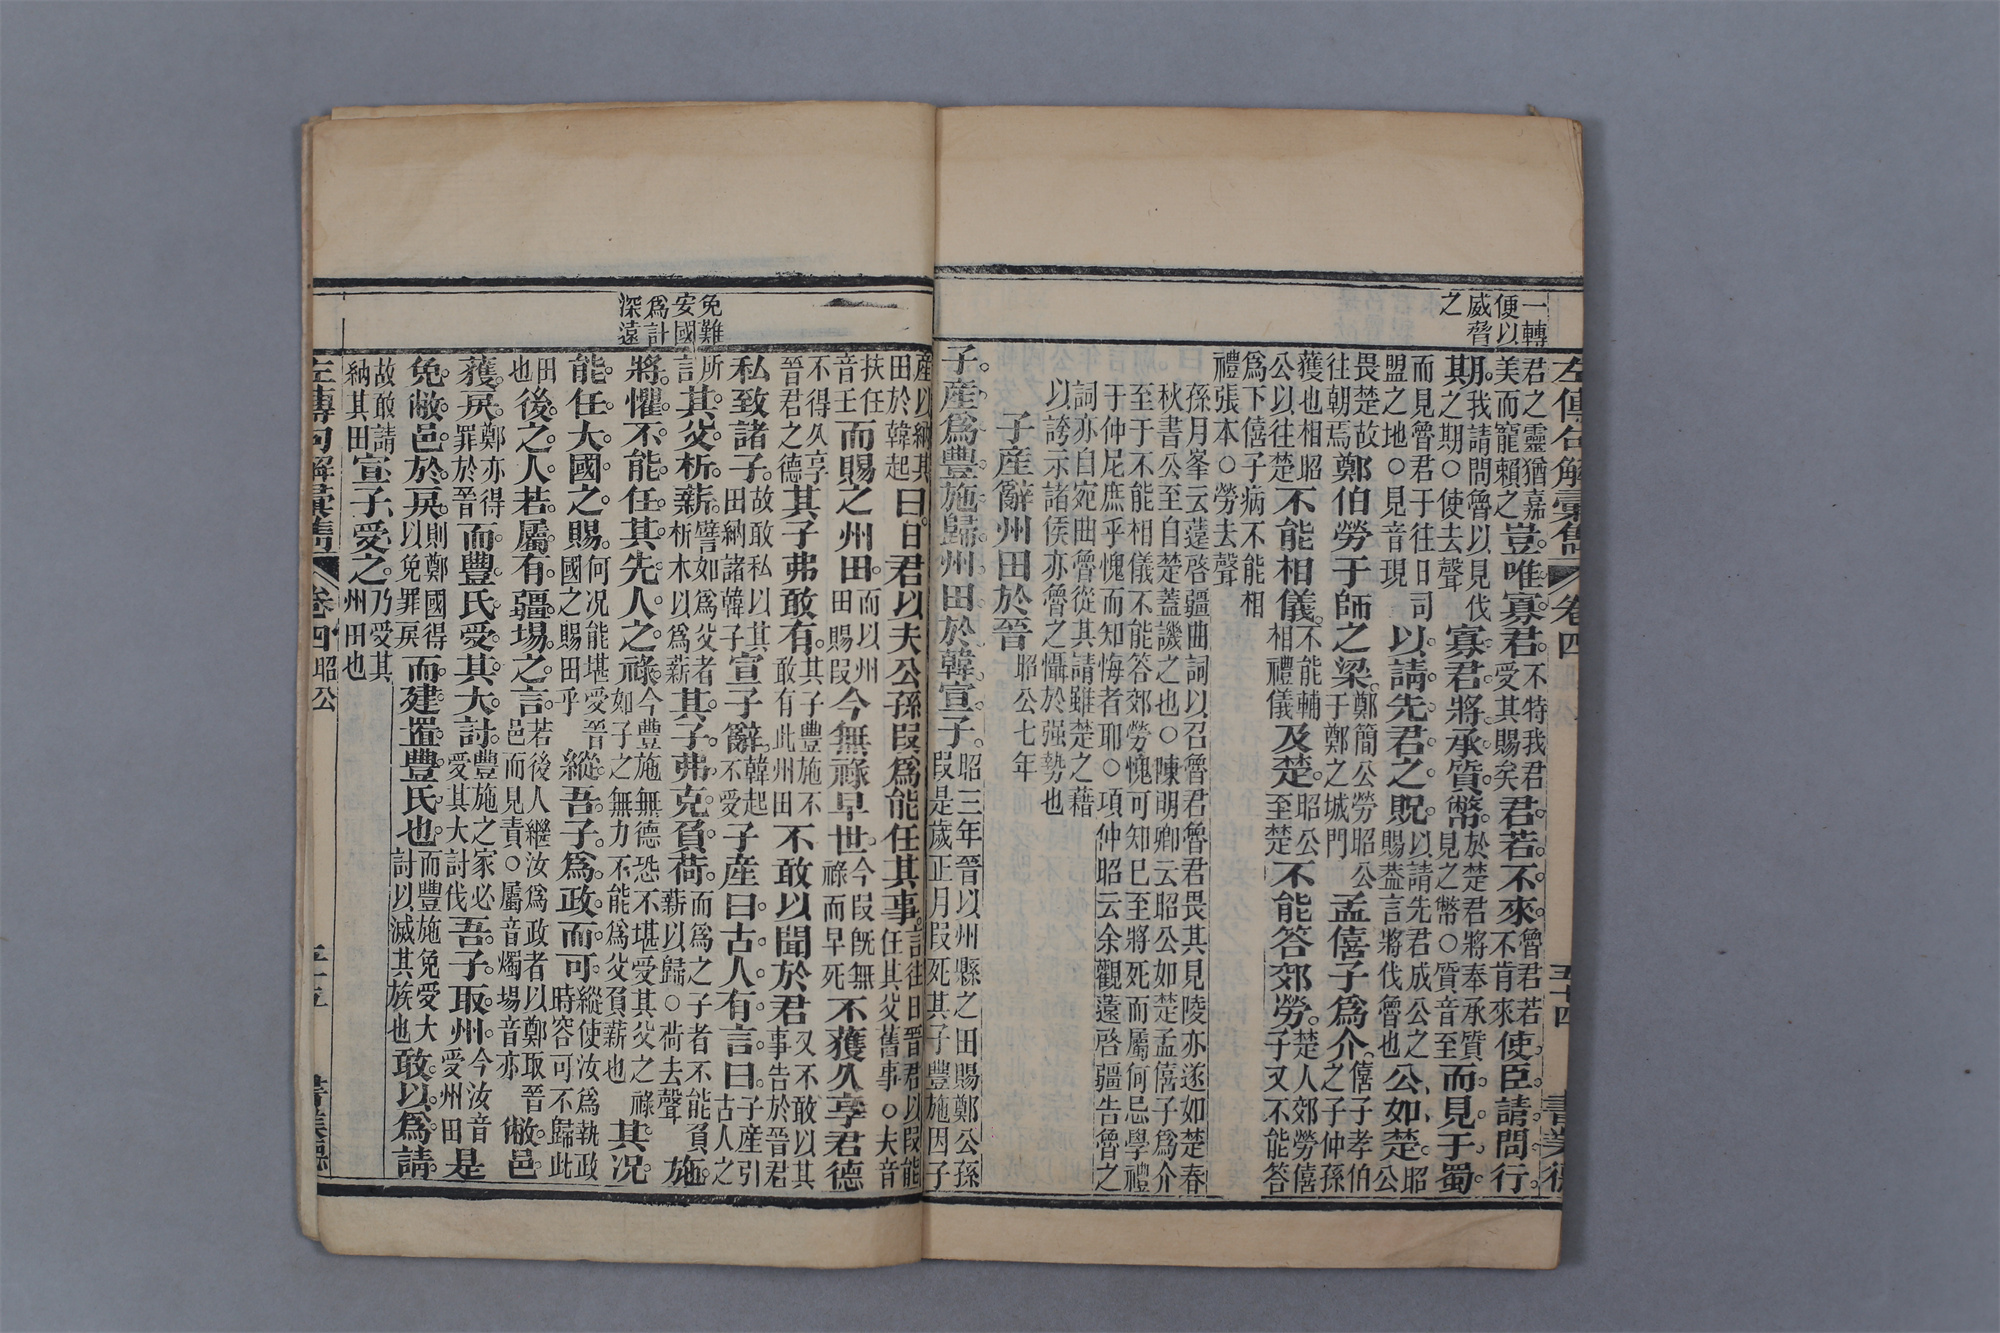 一轉
便以
威脅
之
左傳句解彙雋 卷四 五十四 書業德
君之靈猶嘉
美而寵賴之豈唯寡君不特我君
受其賜矣君若不來魯君若
不肯來使臣請問行
期我請問魯以見伐
之期○使去聲寡君將承質幣於楚君將奉承質
見之幣○質音至而見于蜀
而見魯君于往日司
盟之地○見音現以請先君之貺以請先君成公之
賜葢言將伐魯也公如楚昭
公
畏楚故
往朝焉鄭伯勞于師之梁鄭簡公勞昭公
于鄭之城門孟僖子爲介僖子孝伯
之子仲孫
貜也相昭
公以往楚不能相儀不能輔
相禮儀及楚昭公
至楚不能答郊勞楚人郊勞僖
子又不能答
爲下僖子病不能相
禮張本○勞去聲
孫月峯云薳啓疆曲詞以召魯君魯君畏其見陵亦遂如楚春
秋書公至自楚蓋譏之也○陳明卿云昭公如楚孟僖子爲介
至于不能相儀不能答郊勞愧可知巳至將死而屬何忌學禮
于仲尼庶乎愧而知悔者耶○項仲昭云余觀薳啓疆告魯之
詞亦自宛曲魯從其請雖楚之藉
以誇示諸侯亦魯之懾於强勢也
子產辭州田於晉昭公七年
子產爲豐施歸州田於韓宣子昭三年晉以州縣之田賜鄭公孫
叚是歲正月叚死其子豐施因子
免難
安國
爲計
深遠
產以納其
田於韓起曰日君以夫公孫叚爲能任其事言往日晉君以叚能
任其父舊事○夫音
扶任
音壬而賜之州田而以州
田賜叚今無祿早世今叚旣無
祿而早死不獲久享君德
不得久享
晉君之德其子弗敢有其子豐施不
敢有此州田不敢以聞於君又不敢以其
事告於晉君
私致諸子故敢私以其
田納諸韓子宣子辭韓起
不受子產曰古人有言曰子產引
古人之
所
言其父析薪譬如爲父者
析木以爲薪其子弗克負荷而爲之子者不能負
薪以歸○荷去聲施
將懼不能任其先人之祿今豐施無德恐不堪受其父之祿
如子之無力不能爲父負薪也其况
能任大國之賜何况能堪受晉
國之賜田乎縱吾子爲政而可縱使汝爲執政
時容可不歸此
田
也後之人若屬有疆場之言若後人繼汝爲政者以鄭取晉
邑而見責○屬音燭場音亦敝邑
獲戾鄭亦得
罪於晉而豐氏受其大討豐施之家必
受其大討伐吾子取州今汝音
受州田是
免敝邑於戾則鄭國得
以免罪戾而建置豐氏也而豐施免受大
討以滅其族也敢以爲請
故敢請
納其田宣子受之乃受其
州田也
左傳句解彙雋 卷四 昭公 五十五 書業德